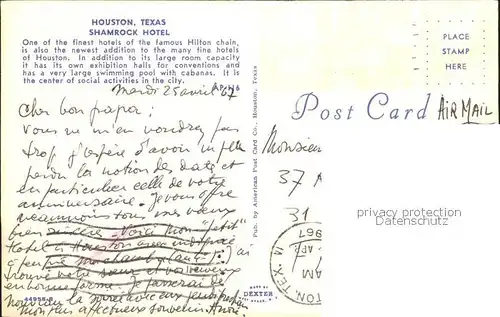 HOUSTON, TEXAS
SHAMROCK HOTEL
One of the finest hotels of the famous Hilton chain,
is also the newest addition to the many fine hotels
of Houston. In addition to its large room capacity
it has its own exhibition halls for conventions and
has a very large swimming pool with cabanas. It is
the center of social activities in the city.
Mardi 25 avril 67
Cher bon papa;
Vous ne m'en voudrez pas
trop j'espère d'avoir un peu
perdu la notion des dates et
en particulier celle de votre
anniversaire. Je vous offre
néanmoins tous mes vœux
bien Voici mon "petit"
hotel à Houston
trouvé votre sœur et
en bonne forme Je passerai de
nouveau la soirée avec eux
Mon plus affectueux souvenir. André
44998-B
Pub. by American Post Card Co., Houston, Texas
DEXTER
PLACE
STAMP
HERE
Post Card
AIR MAIL
Monsieur
37
31
1967
AM
TON, TEX
privacy protection
Datenschutz